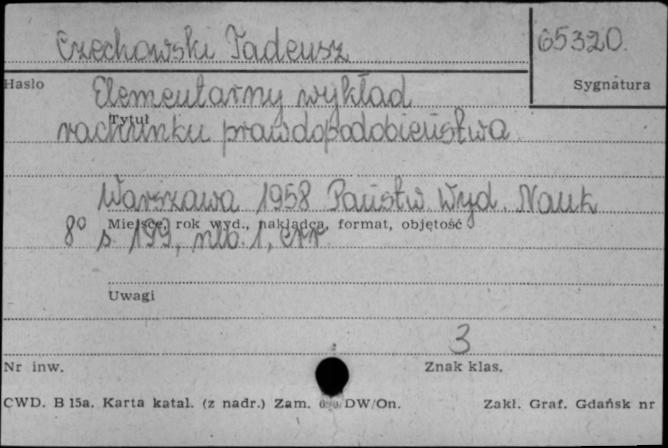 Czechowski Tadeusz 65320.
Hasło Sygnatura
Elementarny wykład
Tytuł
rachunku prawdopodobieństwa
Warszawa 1958 Państw Wyd. Nauk
Miejsce, rok wyd., nakładca, format, objętość
8° s 199, nlb. 1, err
Uwagi
3
Nr inw. Znak klas.
CWD. B 15a. Karta katal. (z nadr.) Zam. DW/On. Zakł. Graf. Gdańsk nr